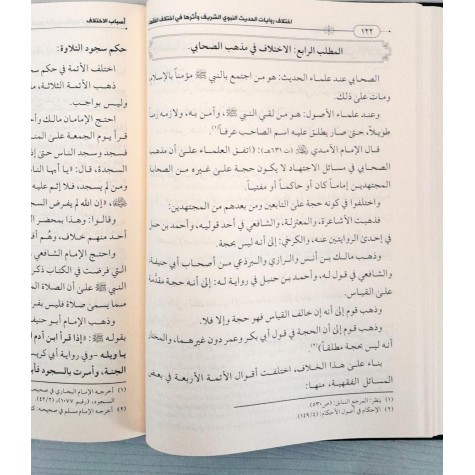 ١٢٢
اختلاف روايات الحديث النبوي الشريف وأثرها في اختلاف
المطلب الرابع: الاختلاف في مذهب الصحابي.
الصحابي عند علماء الحديث: هو من اجتمع بالنبي ﷺ مؤمناً بالإسلام
ومات على ذلك.
وعند علماء الأصول: هو من لقي النبي ﷺ، وآمن به، ولازمه زمناً
طويلاً، حتى صار يطلق عليه اسم الصاحب عرفاً(١).
قال الإمام الآمدي (ت ٦٣١هـ): (اتفق العلماء على أن مذهب
الصحابي في مسائل الاجتهاد لا يكون حجة على غيره من الصحابة
المجتهدين إماماً كان أو حاكماً أو مفتياً.
واختلفوا في كونه حجة على التابعين ومن بعدهم من المجتهدين:
فذهبت الأشاعرة، والمعتزلة، والشافعي في أحد قوليه، وأحمد بن حنبل
في إحدى الروايتين عنه، والكرخي: إلى أنه ليس بحجة.
وذهب مالك بن أنس والرازي والبرذعي من أصحاب أبي حنيفة
والشافعي في قول له، وأحمد بن حنبل في رواية له: إلى أنه حجة مقدَّمة
على القياس.
وذهب قوم إلى أنه إن خالف القياس فهو حجة وإلا فلا.
وذهب قوم إلى أن الحجة في قول أبي بكر وعمر دون غيرهما، والمختار
أنه ليس بحجة مطلقاً)(٢).
بناء على هذا الخلاف، اختلفت أقوال الأئمة الأربعة في بعض
المسائل الفقهية، منها:
(١) ينظر: المرجع السابق: (ص٥٣٠).
(٢) الإحكام في أصول الأحكام: (١٤٩/٤).
أسباب الاختلاف
حكم سجود التلاوة:
اختلف الأئمة في حكم
ذهب الأئمة الثلاثة،
وليس بواجب.
احتج الإمامان مالك
قرأ يوم الجمعة على
فسجد وسجد الناس حتى إذا
فسجد، قال: «يا أيها
ومن لم يسجد، فلا إثم عليه
ﷺ: «إن الله لم يفرض
وقالوا: وهذا بمحضر
أحد منهم خلاف، وهُم
التي فرضت في الكتاب
ﷺ على أن الصلاة
مما يسمى صلاة فلم
وذهب الإمام أبي
بقوله ﷺ: «إذا قرأ ابن آدم
يا ويله -وفي رواية أبي
الجنة، وأمرت بالسجود
(١) أخرجه الإمام البخاري في صحيحه
السجود، (رقم ١٠٧٧)، (٤٢/٢).
(٢) أخرجه الإمام مسلم في صحيحه